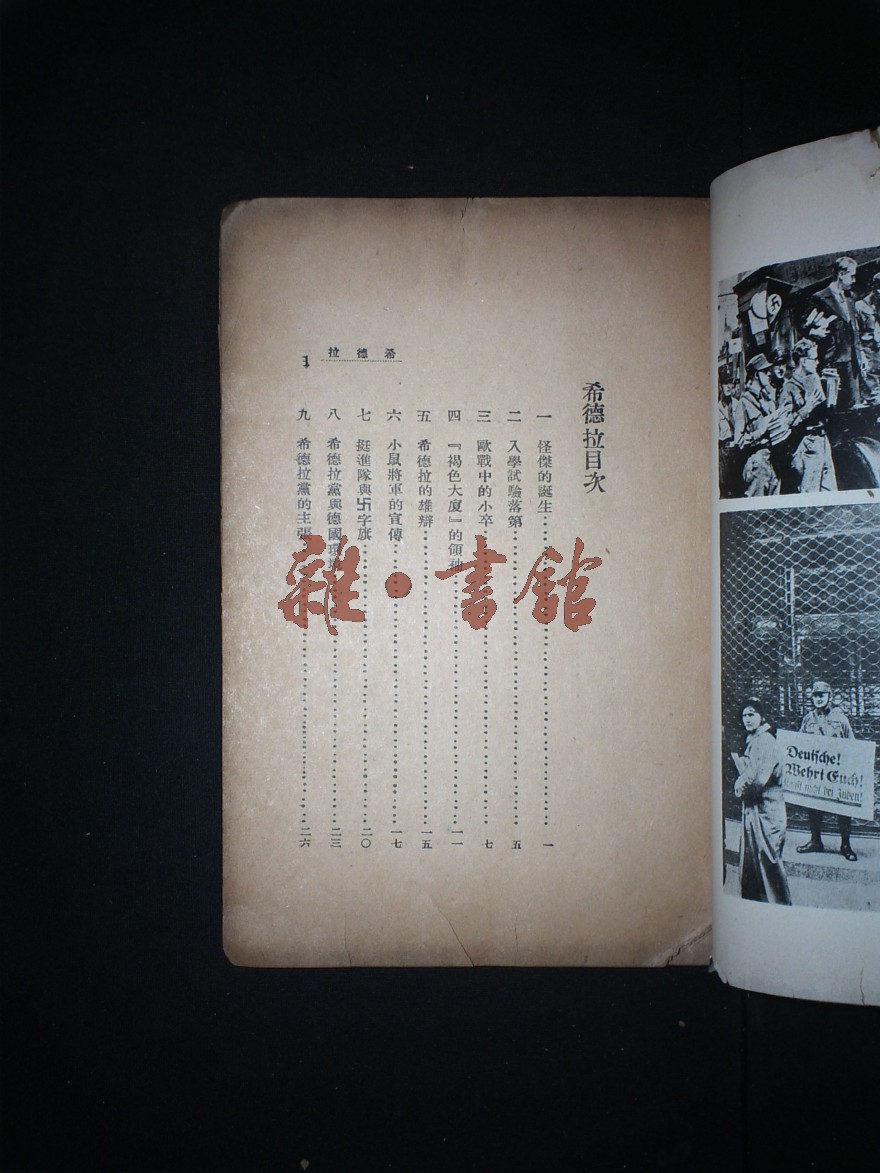 希德拉目次
一 怪傑的誕生⋯⋯⋯⋯⋯⋯⋯⋯一
二 入學試驗落第⋯⋯⋯⋯⋯⋯⋯⋯五
三 歐戰中的小卒⋯⋯⋯⋯⋯⋯⋯⋯七
四 『褐色大廈』的領袖⋯⋯⋯⋯⋯⋯⋯⋯一一
五 希德拉的雄辯⋯⋯⋯⋯⋯⋯⋯⋯一五
六 小鼠將軍的宣傳⋯⋯⋯⋯⋯⋯⋯⋯一七
七 挺進隊與卐字旗⋯⋯⋯⋯⋯⋯⋯⋯二〇
八 希德拉黨與德國⋯⋯⋯⋯⋯⋯⋯⋯二三
九 希德拉黨的主張⋯⋯⋯⋯⋯⋯⋯⋯二六
希德拉
1
雜·書館
Deutsche!
Wehrt Euch!
nicht bei Juden!